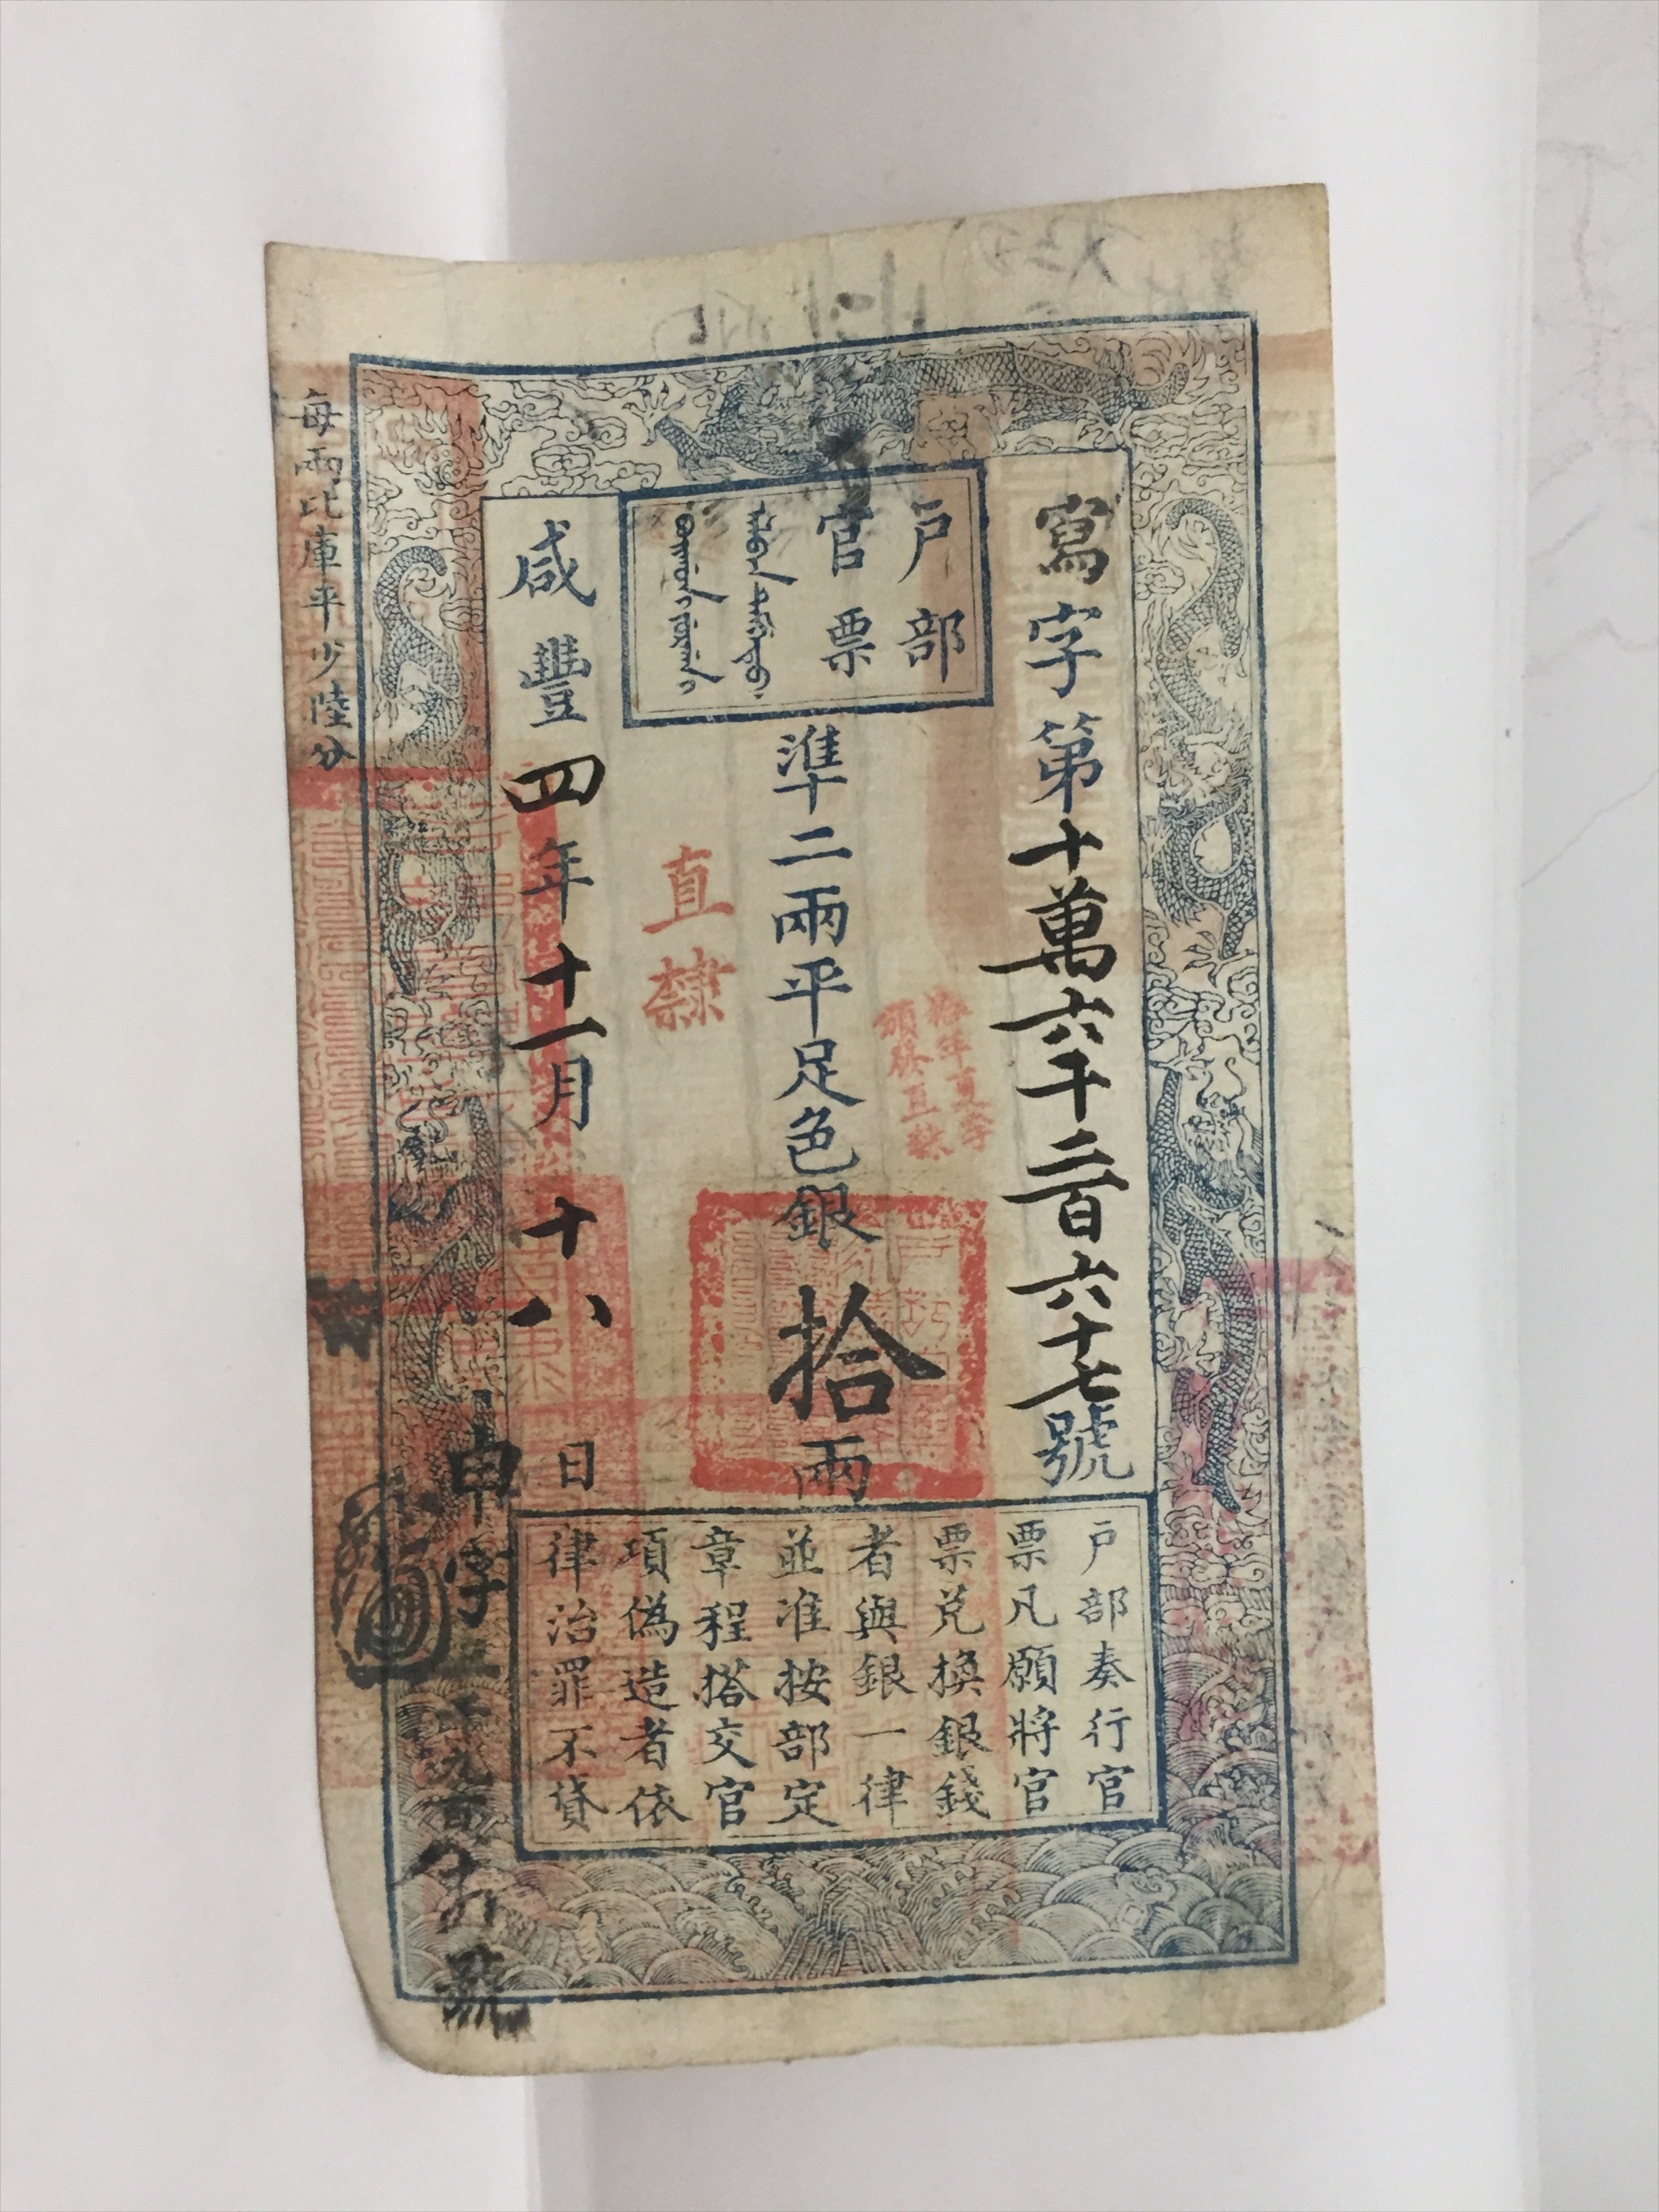 寫字第十萬六千二百六十七號
戶部
官票
準二兩平足色銀拾兩
拾年夏季
頒發直隸
直隸
咸豐四年十一月十八日
戶部奏行官
票凡願將官
票兌換銀錢
者與銀一律
並准按部定
章程搭交官
項偽造者依
律治罪不貸
每兩比庫平少陸分
申字
號